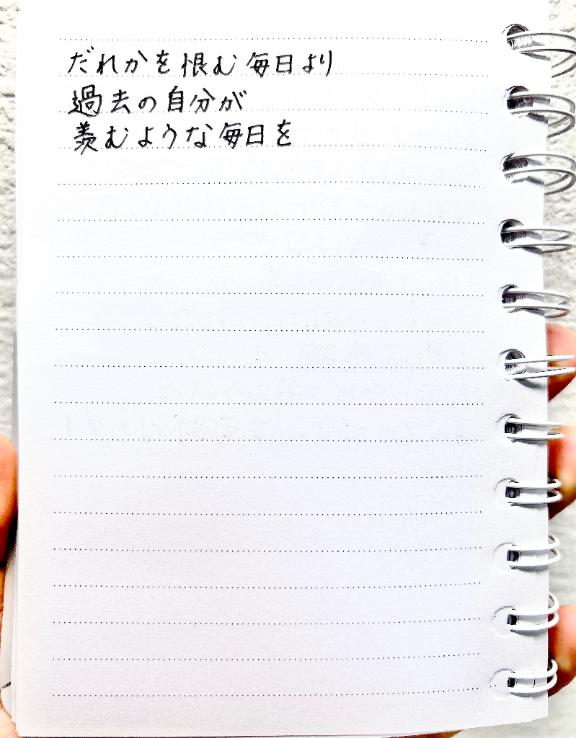 だれかを恨む毎日より
過去の自分が
羨むような毎日を